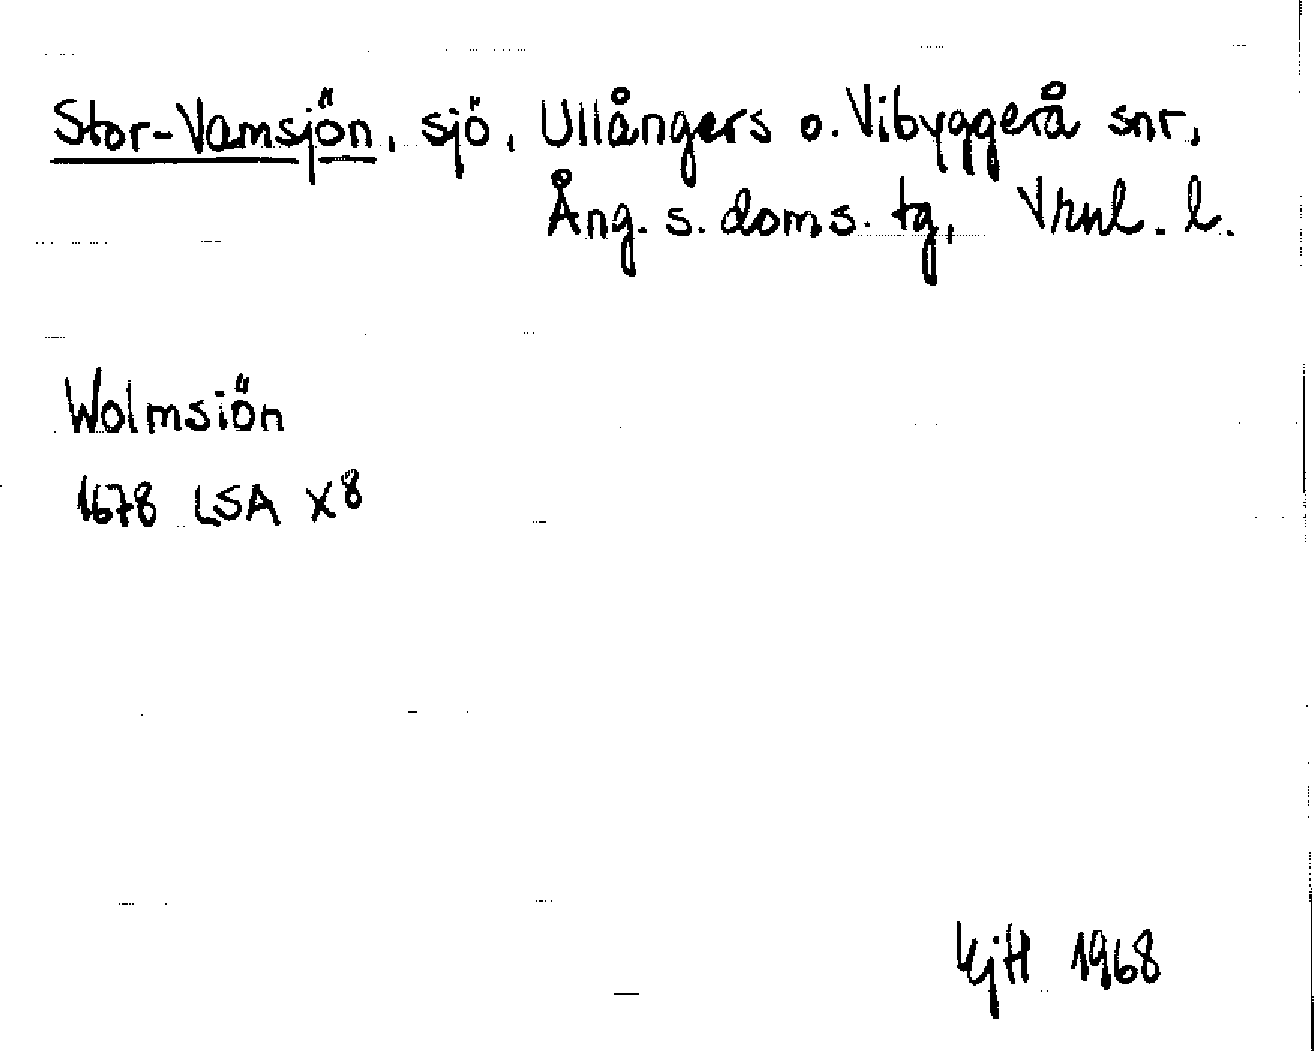 Stor-Vamsjön, sjö, Ullångers o. Vibyggerå snr,
Ång. s. doms. tg, Vrnl. l.
Wolmsiön
1678 LSA X8
KjH 1968